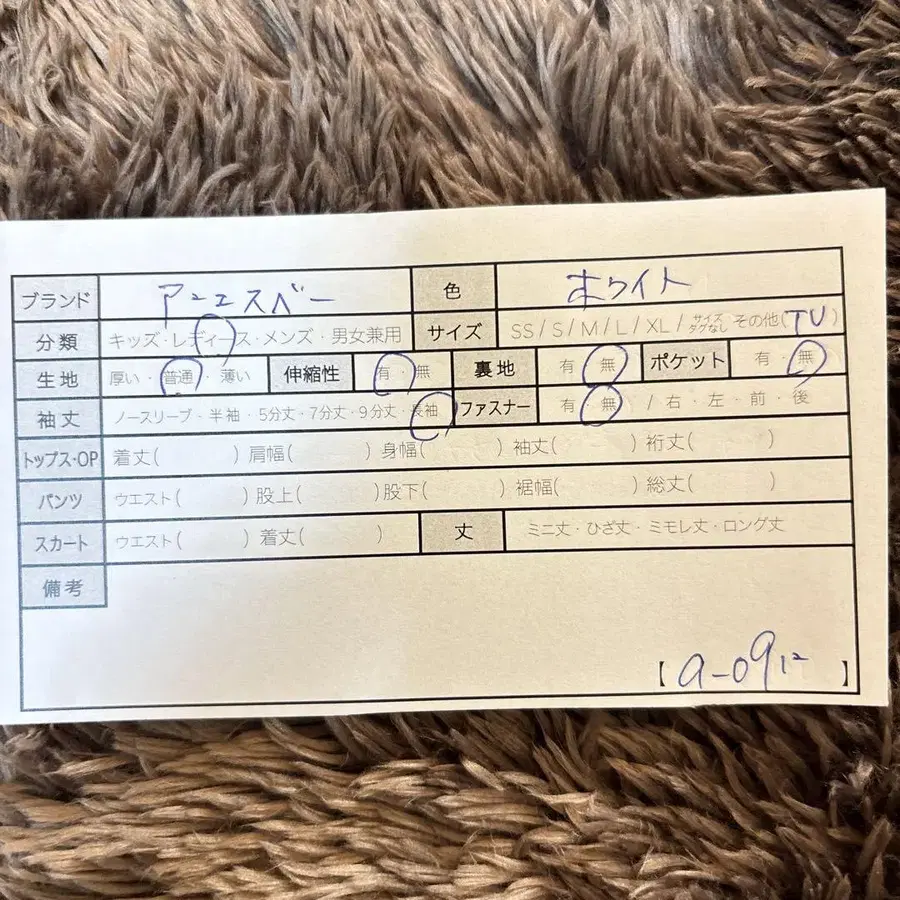 ブランド アーエスベー 色 ホワイト
分類 キッズ・レディース・メンズ・男女兼用 サイズ SS / S / M / L / XL / サイズタグなし その他(TU)
生地 厚い・普通・薄い 伸縮性 有・無 裏地 有・無 ポケット 有・無
袖丈 ノースリーブ・半袖・5分丈・7分丈・9分丈・長袖 ファスナー 有・無 / 右・左・前・後
トップス・OP 着丈( ) 肩幅( ) 身幅( ) 袖丈( ) 裄丈( )
パンツ ウエスト( ) 股上( ) 股下( ) 裾幅( ) 総丈( )
スカート ウエスト( ) 着丈( ) 丈 ミニ丈・ひざ丈・ミモレ丈・ロング丈
備考
【 a-0912 】